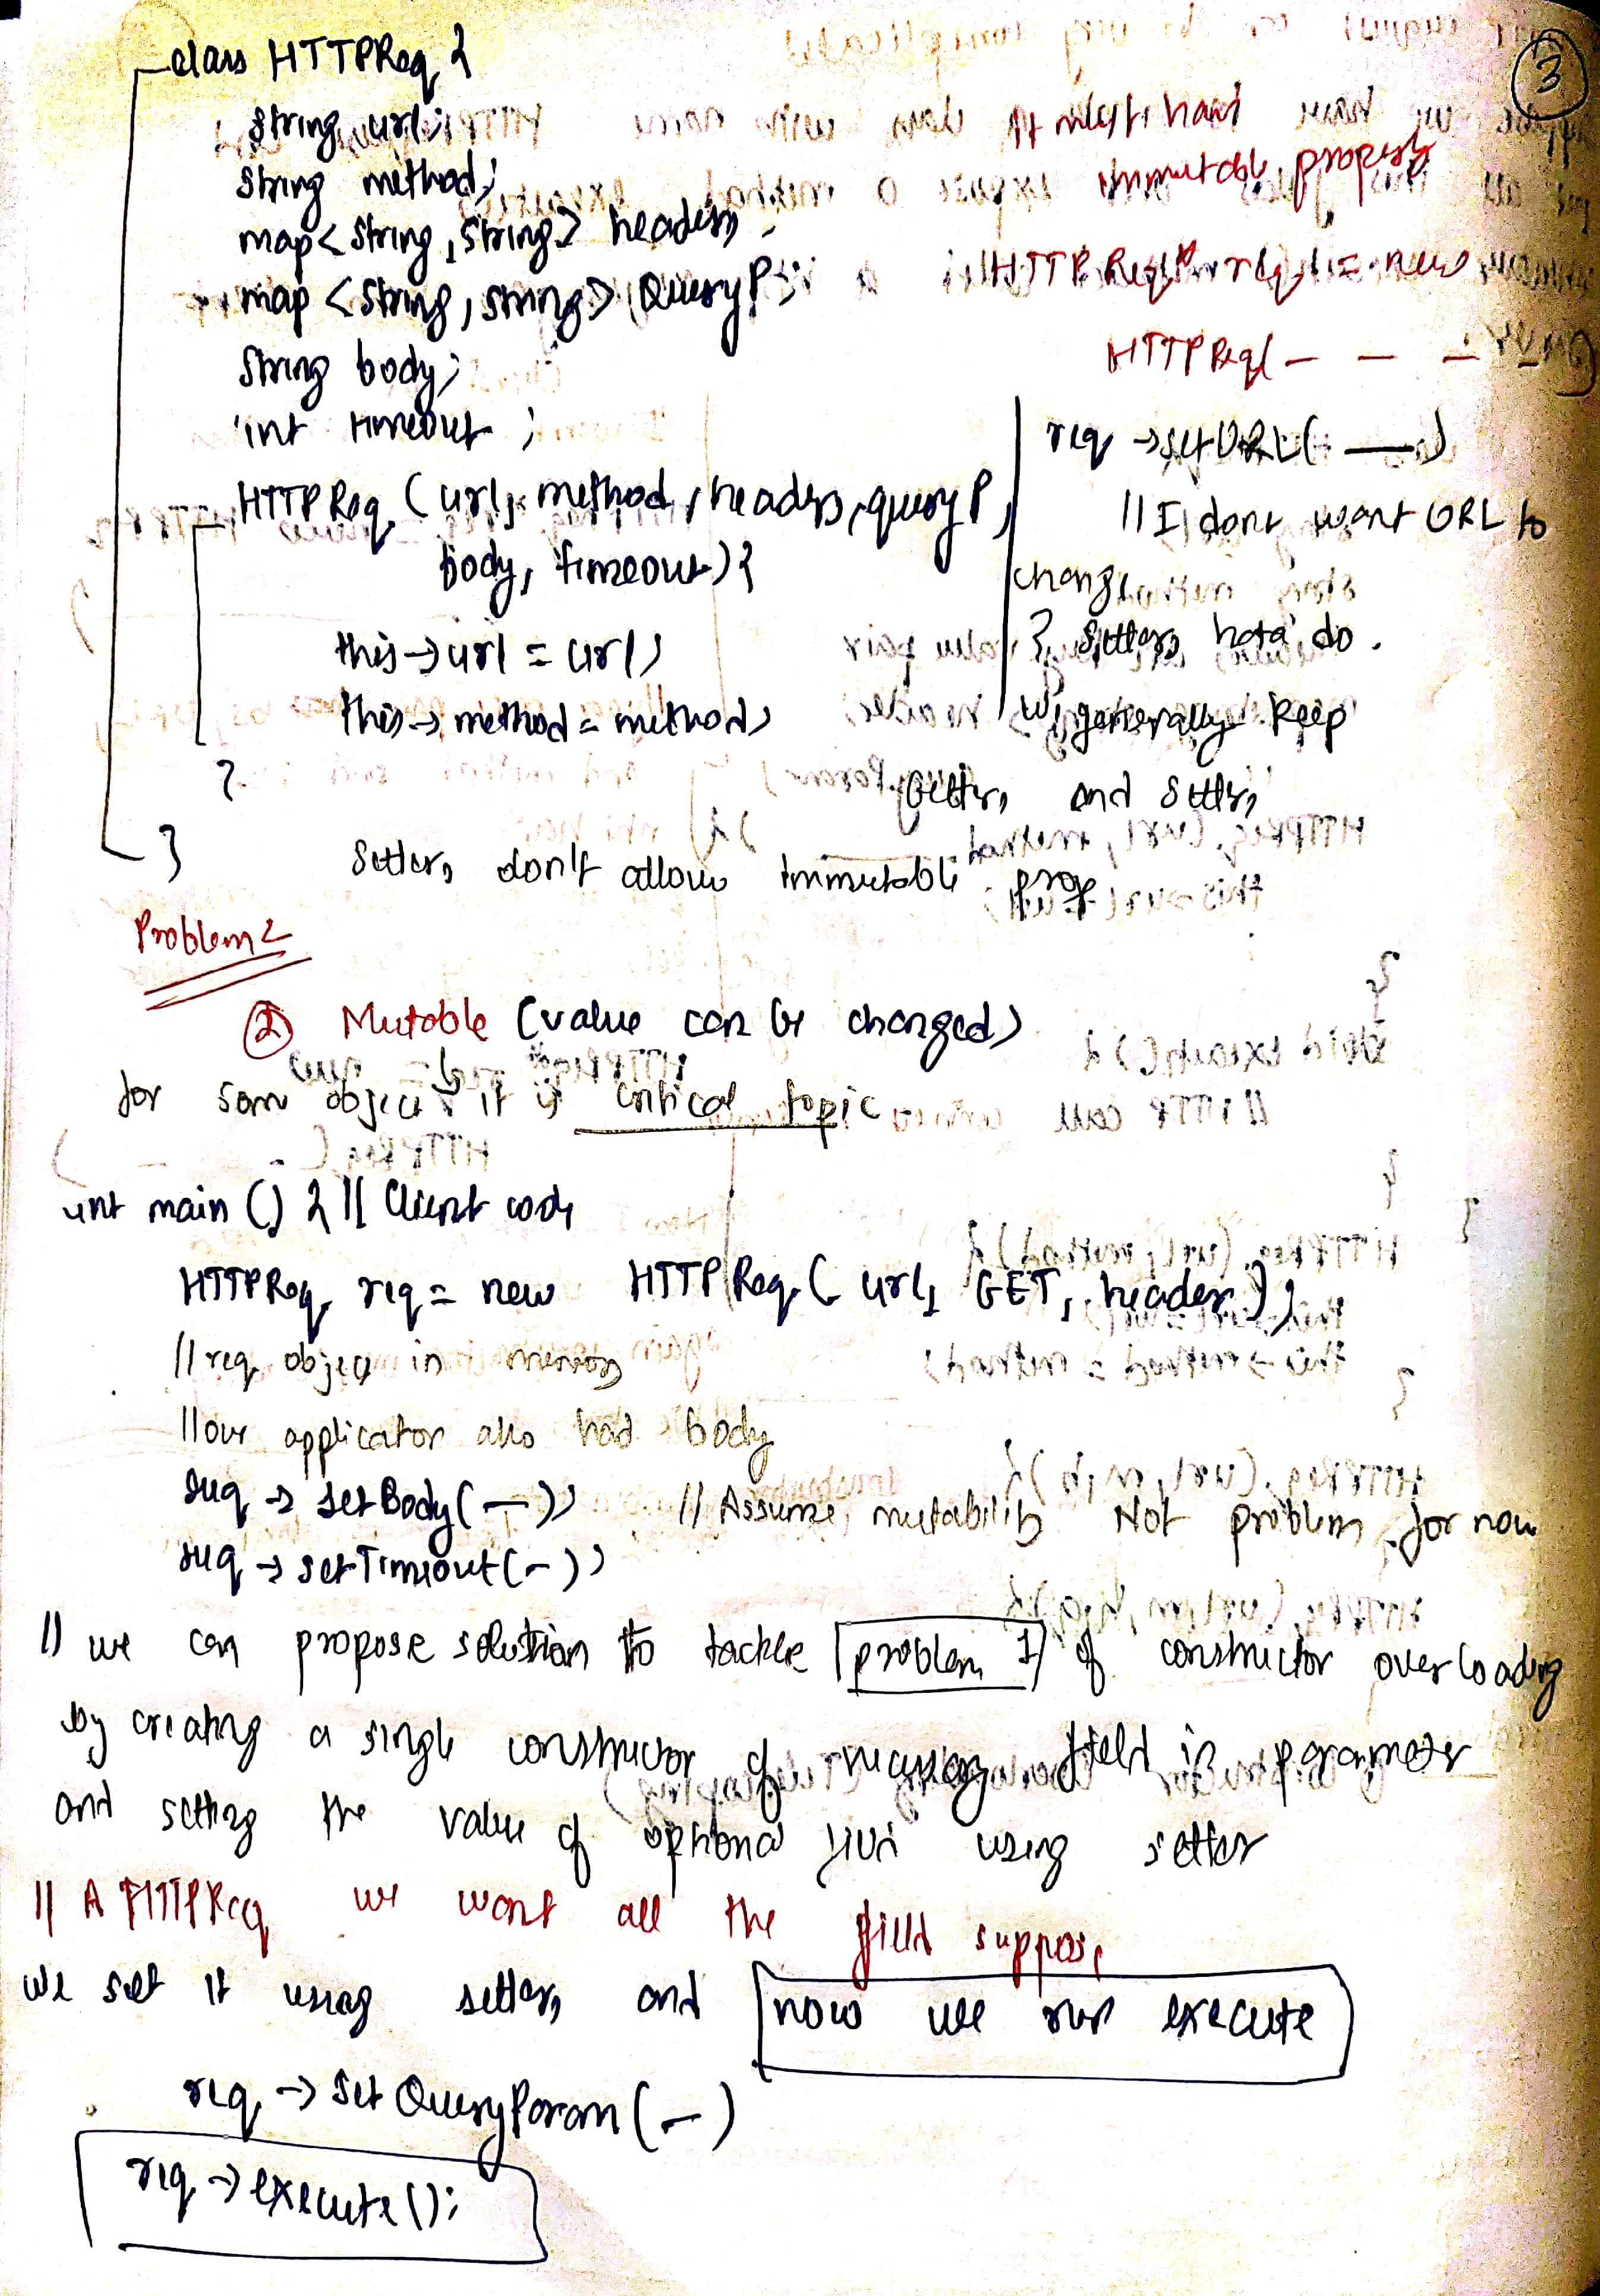 3
class HTTPReq {
string url;
string method;
map<string, string> headers;
map <string, string> QueryP;
string body;
int timeout;
HTTPReq (url, method, headers, queryP,
body, timeout) {
this->url = url;
this->method = method;
}
}
It might hard
immutable property
HTTPReq* req = new
HTTPReq( - - -
req ->setURL( — )
// I dont want URL to
change
} setters hata do.
we generally keep
Getters and setters
setters don't allow Immutable prop
Problem 2
② Mutable (value can be changed)
for some object it is critical topic
int main () { // Client code
HTTPReq req = new HTTPReq ( url, GET, header );
// req object in memory
// our application also had body
req -> setBody( — ); // Assume mutability Not problem for now
req -> setTimeout( - );
// we can propose solution to tackle problem 1 of constructor overloading
by creating a single constructor of necessary field in parameter
and setting the value of optional field using setter
// A HTTPReq we want all the field suppose
we set it using setters and now we run execute
req -> setQueryParam ( - )
req -> execute ();